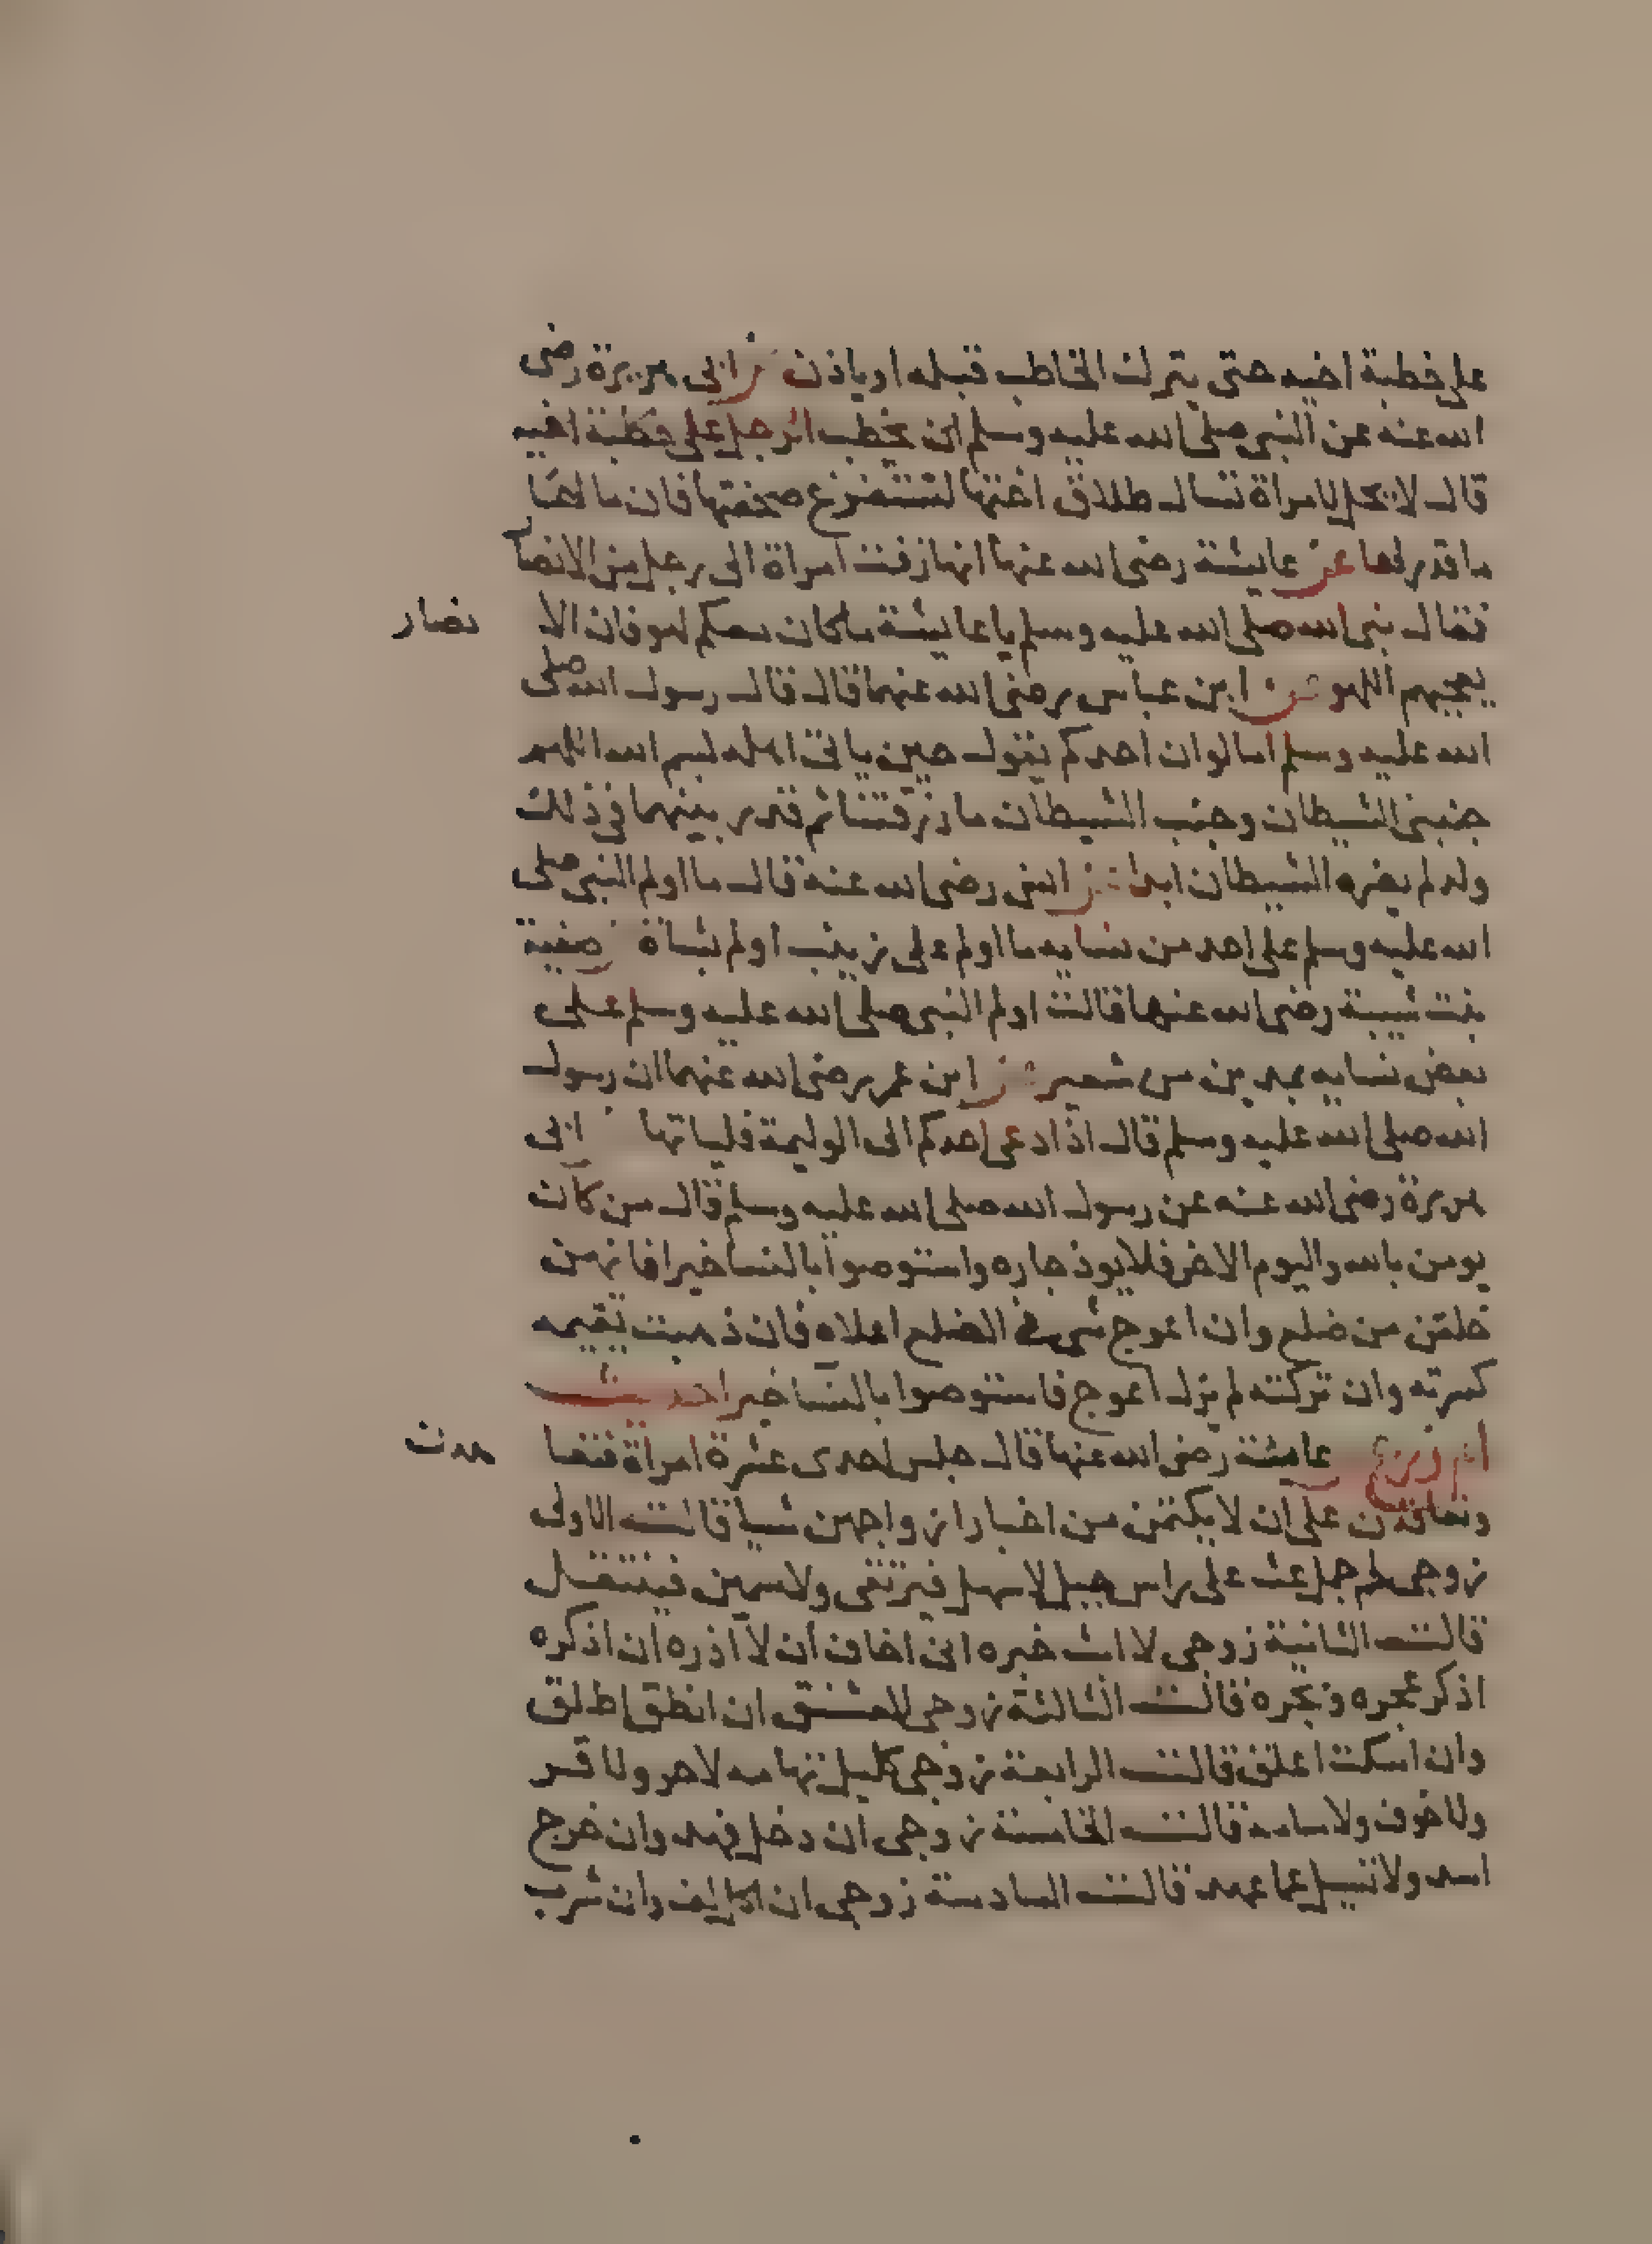 على خطبة اخيه حتى يترك الخاطب قبله او ياذن عن ابى هريرة رضى
الله عنه عن النبى صلى الله عليه وسلم ان يخطب الرجل على خطبة اخيه
قال لا يحل لامراة تسال طلاق اختها لتستفرغ صحفتها فان ما لها
ما قدر لها عن عايشة رضى الله عنها انها زفت امراة الى رجل من الانصا
فقال نبى الله صلى الله عليه وسلم يا عايشة ما كان معكم لهو فان الا
نصار
يعجبهم اللهو عن ابن عباس رضى الله عنهما قال قال رسول الله صلى
الله عليه وسلم اما لو ان احدكم يقول حين ياتى اهله بسم الله اللهم
جنبنى الشيطان وجنب الشيطان ما رزقتنا ثم قدر بينهما فى ذلك
ولد لم يضره الشيطان ابدا عن انس رضى الله عنه قال ما اولم النبى صلى
الله عليه وسلم على احد من نسايه ما اولم على زينب اولم بشاة صفية
بنت شيبة رضى الله عنها قالت اولم النبى صلى الله عليه وسلم على
بعض نسايه بمدين من شعير عن ابن عمر رضى الله عنهما ان رسول
الله صلى الله عليه وسلم قال اذا دعى احدكم الى الوليمة فلياتها ابى
هريرة رضى الله عنه عن رسول الله صلى الله عليه وسلم قال من كان
يومن بالله واليوم الاخر فلا يوذ جاره واستوصوا بالنسا خيرا فانهن
خلقن من ضلع وان اعوج شى فى الضلع اعلاه فان ذهبت تقيمه
كسرته وان تركته لم يزل اعوج فاستوصوا بالنسا خيرا حديث
ام زرع عايشة رضى الله عنها قال جلس احدى عشرة امراة فتعا
هدن
وتعاقدن على ان لا يكتمن من اخبار ازواجهن شيا قالت الاولى
زوجى لحم جمل غث على راس جبل لا سهل فيرتقى ولا سمين فينتقل
قالت الثانية زوجى لا ابث خبره انى اخاف ان لا اذره ان اذكره
اذكر عجره وبجره قالت الثالثة زوجى العشنق ان انطق اطلق
وان اسكت اعلق قالت الرابعة زوجى كليل تهامه لا حر ولا قر
ولا خوف ولا سامه قالت الخامسة زوجى ان دخل فهد وان خرج
اسد ولا تسيل عما عهد قالت السادسة زوجى ان اكل لف وان شرب